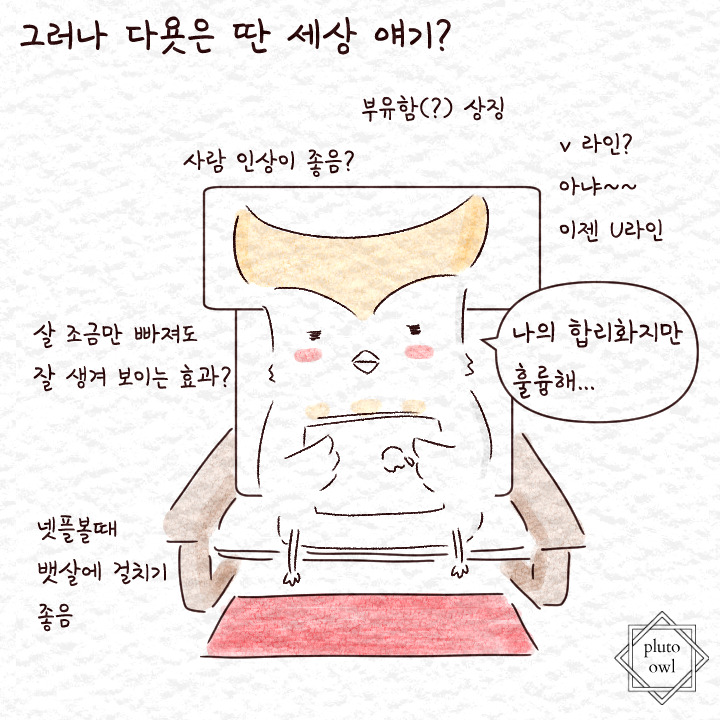 그러나 다욧은 딴 세상 얘기?
부유함(?) 상징
사람 인상이 좋음?
v 라인?
아냐~~
이젠 U라인
살 조금만 빠져도
잘 생겨 보이는 효과?
나의 합리화지만
훌륭해...
넷플볼때
뱃살에 걸치기
좋음
pluto
owl